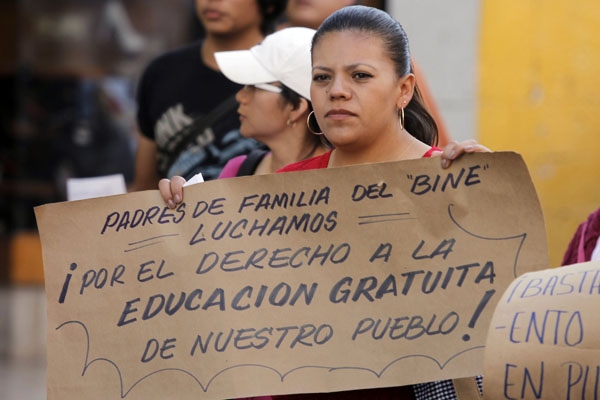 PADRES DE FAMILIA DEL "BINE"
LUCHAMOS
¡POR EL DERECHO A LA
EDUCACION GRATUITA
DE NUESTRO PUEBLO!
¡BASTA
-ENTO
EN